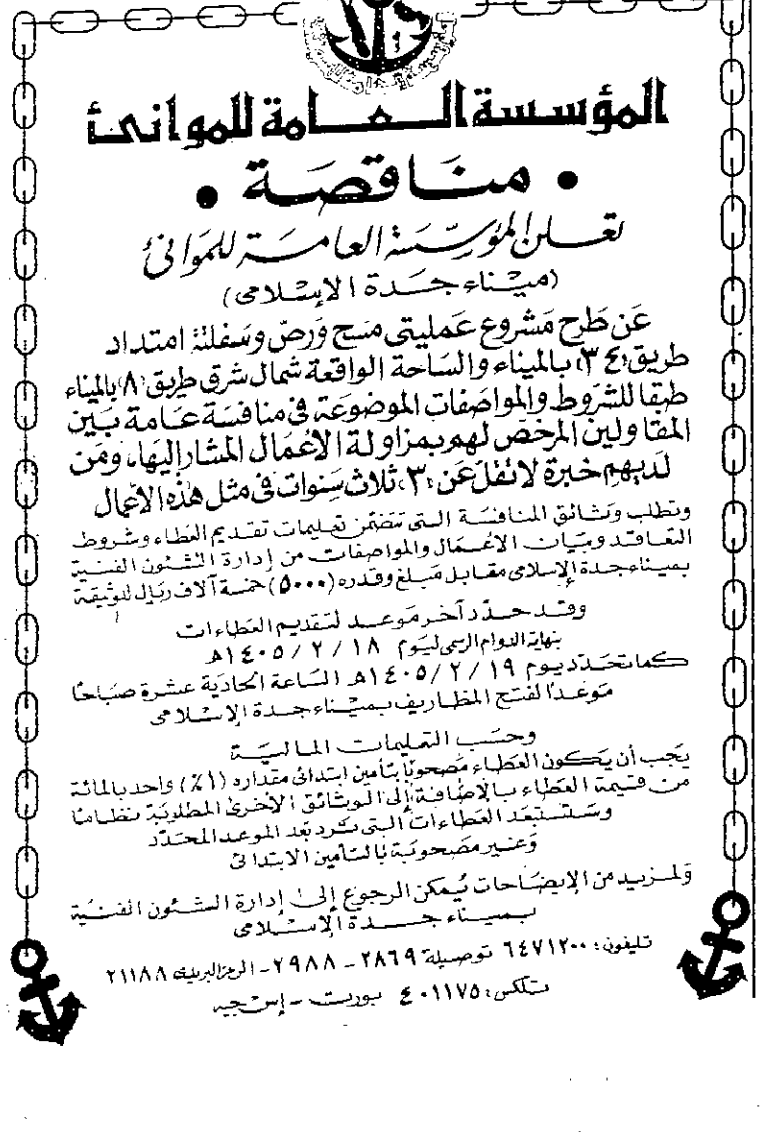 المؤسسة العامة للموانئ
• مناقصة •
تعلن المؤسسة العامة للموانئ
(ميناء جدة الإسلامي)
عن طرح مشروع عمليتي مسح ورص وسفلتة امتداد
طريق (٣٤) بالميناء والساحة الواقعة شمال شرق طريق (٨) بالميناء
طبقا للشروط والمواصفات الموضوعة في منافسة عامة بين
المقاولين المرخص لهم بمزاولة الأعمال المشار إليها، ومن
لديهم خبرة لا تقل عن (٣) ثلاث سنوات في مثل هذه الأعمال
وتطلب وثائق المنافسة التي تتضمن تعليمات تقديم العطاء وشروط
التعاقد وبيان الأعمال والمواصفات من إدارة الشئون الفنية
بميناء جدة الإسلامي مقابل مبلغ وقدره (٥٠٠٠) خمسة آلاف ريال للوثيقة
وقد حدد آخر موعد لتقديم العطاءات
بنهاية الدوام الرسمي ليوم ١٨ / ٢ / ١٤٠٥هـ
كما تحدد يوم ١٩ / ٢ / ١٤٠٥هـ الساعة الحادية عشرة صباحا
موعدا لفتح المظاريف بميناء جدة الإسلامي
وحسب التعليمات المالية
يجب أن يكون العطاء مصحوبا بتأمين ابتدائي مقداره (١٪) واحد بالمائة
من قيمة العطاء بالإضافة إلى الوثائق الأخرى المطلوبة نظاما
وستستبعد العطاءات التي ترد بعد الموعد المحدد
وغير مصحوبة بالتأمين الابتدائي
ولمزيد من الإيضاحات يمكن الرجوع إلى إدارة الشئون الفنية
بميناء جدة الإسلامي
تليفون: ٦٤٧١٢٠٠ توصيلة ٢٨٦٩ - ٢٩٨٨ - الرمز البريدي ٢١١٨٨
تلكس: ٤٠١١٧٥ بورت - إس جيه